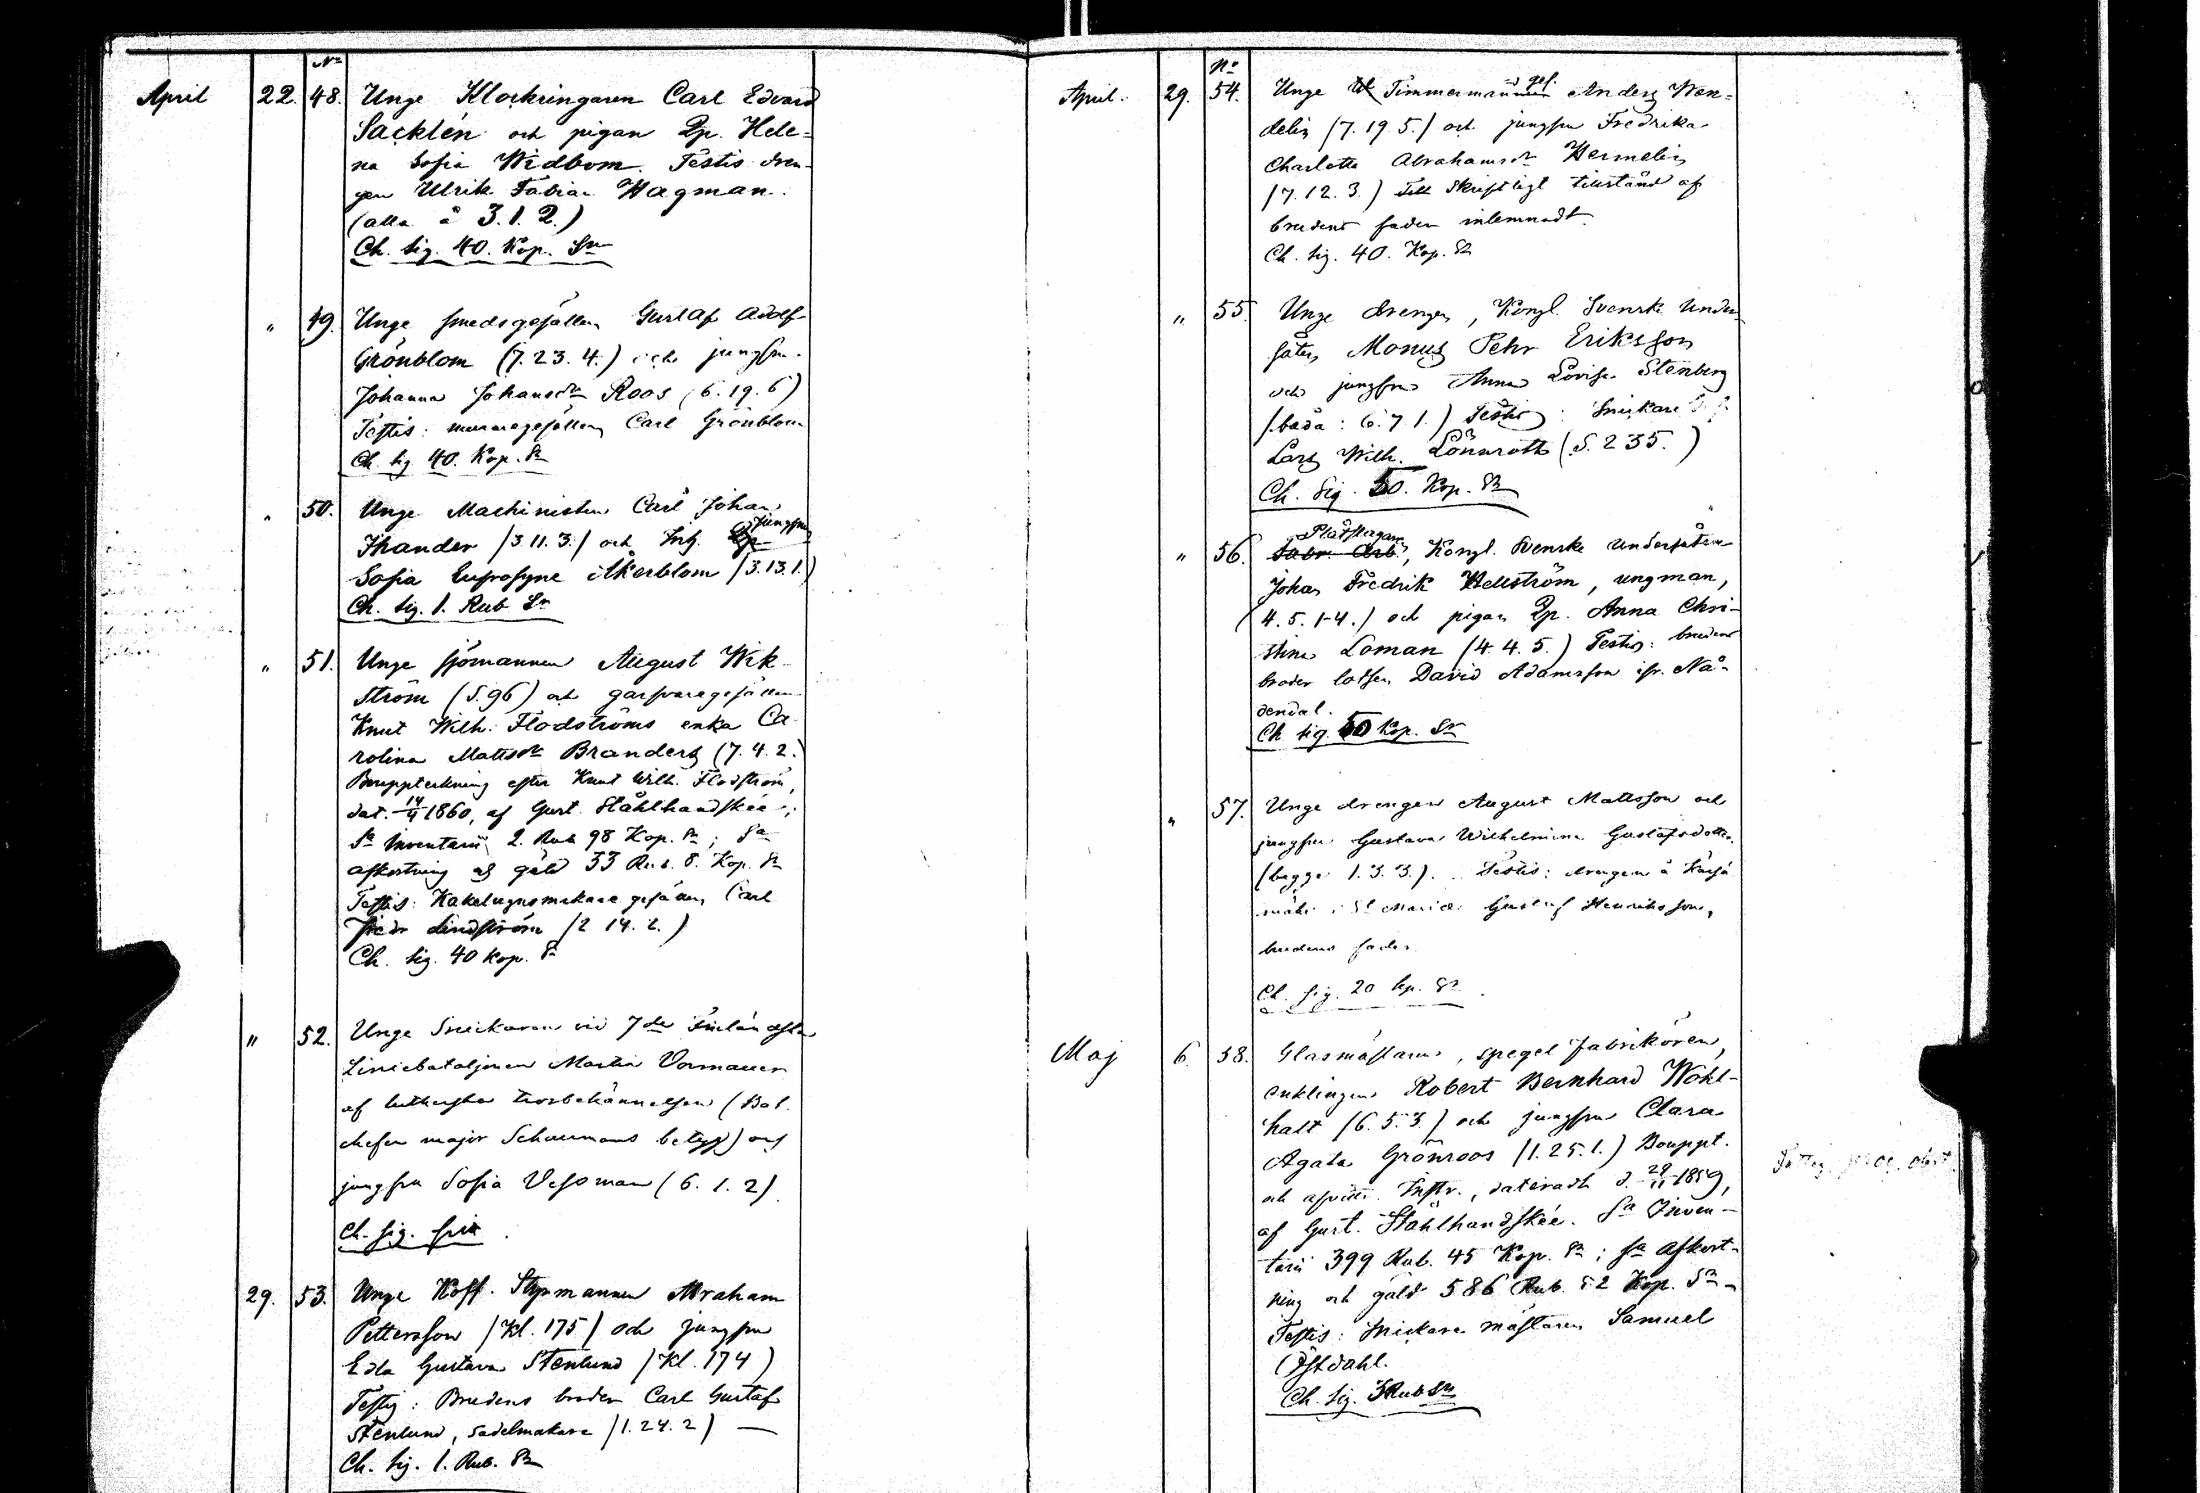 No
April 22. 48. Unge Klockringaren Carl Edvard
Sacklén och pigan Qp. Hele-
na Sofia Widbom. Testis dren-
gen Ulrik Fabian Hagman.
(alla å 3.1.2.)
Ch. sig. 40. Kop. Sr
" 49. Unge smedsgesällen Gustaf Adolf
Grönblom (7.23.4.) och jungfru
Johanna Johansdr Roos (6.19.6)
Testis: muraregesällen Carl Grönblom
Ch. sig 40. Kop. Sr
" 50. Unge Machinisten Carl Johan
Thander /3.11.3./ och Jungfru
Sofia Eufrosyne Åkerblom /3.13.1./
Ch. sig. 1. Rub Sr
" 51. Unge sjömannen August Wik-
ström (S.96) och garfvaregesällen
Knut Wilh. Flodströms enka Ca-
rolina Mattsdr Branders (7.4.2.)
Bouppteckning efter Knut Wilh. Flodström,
dat. 1860, af Gust. Stålhandskée;
Sa Inventarii 2. Rub 98 Kop. Sr; Sa
afkortning och gäld 33 Rub. 8. Kop. Sr
Testis: Kakelugnsmakaregesällen Carl
Fredr Lindström /2 14. 2.)
Ch. sig. 40 Kop. Sr
" 52. Unge Snickaren vid 7de Finländska
Liniebataljonen Martin Vormauer
af lutherska trosbekännelsen (Bat.
chefen major Schaumans betyg) och
jungfru Sofia Vessman (6.1.2)
Ch. sig. fri
29. 53. Unge Koff. Styrmannen Abraham
Pettersson /Kl. 175/ och jungfru
Eda Gustava Stenlund /Kl. 174)
Testis: Brudens broder Carl Gustaf
Stenlund, sadelmakare /1.24.2)
Ch. sig. 1. Rub. Sr
No
April. 29. 54. Unge Timmermans ges. Anders Wen-
delin /7.19 5./ och jungfru Fredrika
Charlotta Abrahamsdr Hermelin
/7.12.3.) Skriftligt tillstånd af
brudens fader inlemnadt.
Ch. sig. 40. Kop. Sr
" 55. Unge drengen, Kongl. Svenske Under-
såten Monus Pehr Eriksson
och jungfru Anna Lovisa Stenberg
/båda: 6.7 1.) Testis: Snickare
Lars Wilh. Lönnroth (S. 235.)
Ch. sig. 50. Kop. Sr
" 56. Plåtslagaren, Kongl. Svenske Undersåten
Johan Fredrik Hellström, ungman,
(4. 5. 1-4.) och pigan Qp. Anna Chri-
stina Loman (4.4.5.) Testis: brudens
broder lotsen David Adamsson ifr. Nå-
dendal.
Ch sig. 50 Kop. Sr
" 57. Unge drengen August Mattsson och
jungfru Gustava Wilhelmina Gustafsdotter.
(begge 1.3.3.). Testis: drengen å
i St Mariæ Gustaf Henriksson,
brudens fader.
Ch. sig. 20 kp. Sr
Maj 6. 58. Glasmästaren, spegel fabrikören,
enklingen Robert Bernhard Wohl-
halt (6.5.3.) och jungfru Clara
Agata Grönroos /1.25.1.) Bouppt.
och Instr., dateradt d. 1859,
af Gust. Stålhandskée. Sa Inven-
tarii 399 Rub. 45 Kop. Sr; Sa afkort-
ning och gäld 586 Rub. 52 Kop. Sr
Testis: Snickare mästaren Samuel
Östdahl.
Ch. sig. 3 Rub Sr